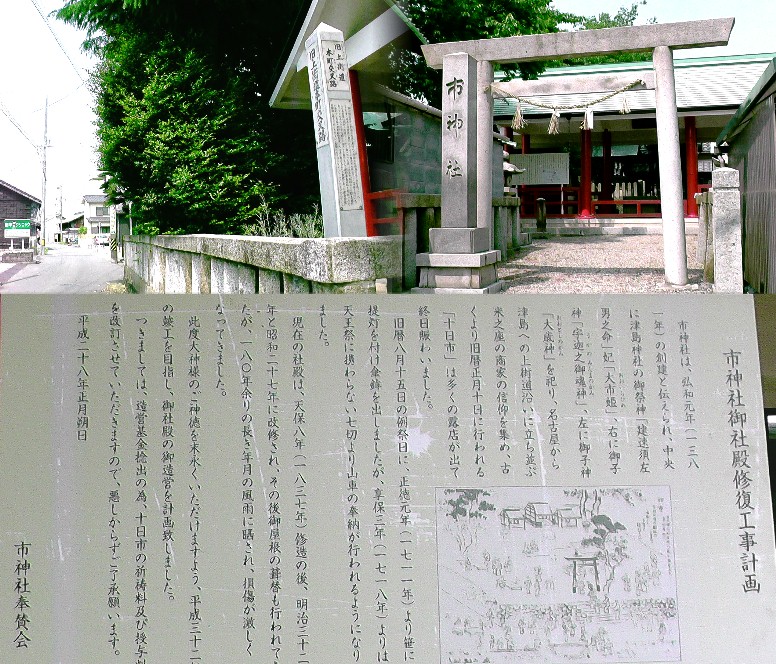 旧上街道
本町交叉路
市神社
市神社御社殿修復工事計画
市神社は、弘和元年(一三八
一年)の創建と伝えられ、中央
に津島神社の御祭神「建速須左
男之命」妃「大市姫」右に御子
神「宇迦之御魂神」、左に御子神
「大歳神」を祀り、名古屋から
津島への上街道沿いに立ち並ぶ
米之座の商家の信仰を集め、古
くより旧暦正月十日に行われる
「十日市」は多くの露店が出て
終日賑わいました。
旧暦八月十五日の例祭日に、正徳元年(一七一一年)より笹に
提灯を付け傘鉾を出しましたが、享保三年(一七一八年)よりは
天王祭に携わらない七切より山車の奉納が行われるようになり
ました。
現在の社殿は、天保八年(一八三七年)修造の後、明治三十二
年と昭和二十七年に改修され、その後御屋根の葺替も行われて
たが、一八〇年余りの長き年月の風雨に晒され、損傷が激しく
なってきました。
此度大神様のご神徳を末永くいただけますよう、平成三十二
の竣工を目指し、御社殿の御造営を計画致しました。
つきましては、造営基金捻出の為、十日市の祈祷料及び授与
を改訂させていただきますので、悪しからずご了承願います。
平成二十八年正月朔日
市神社奉賛会